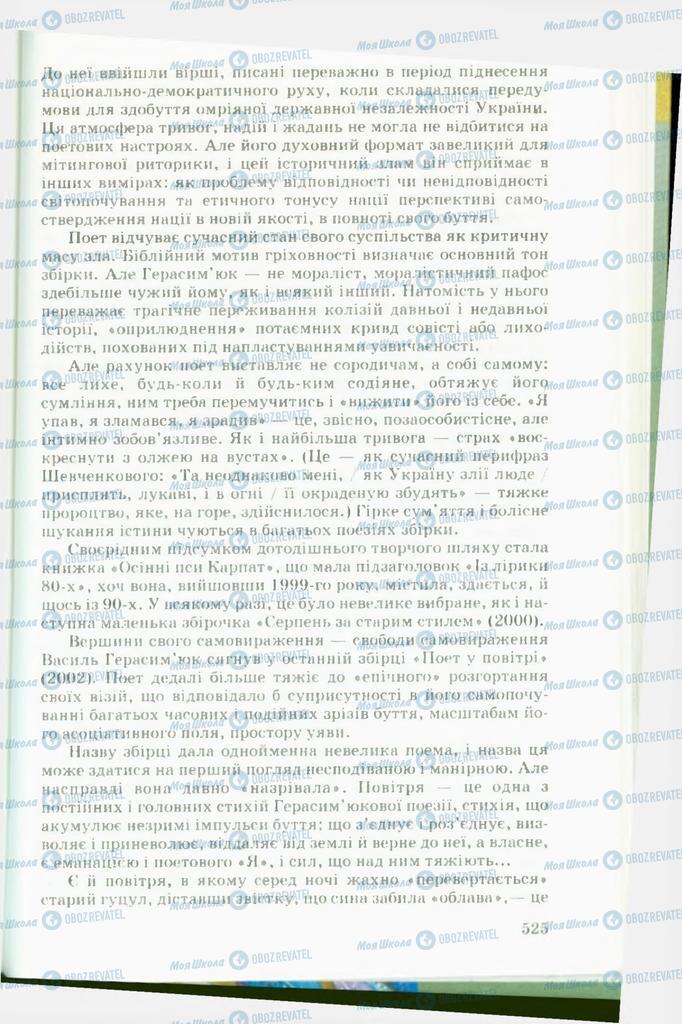 До неї ввійшли вірші, писані переважно в період піднесення
національно-демократичного руху, коли складалися переду-
мови для здобуття омріяної державної незалежності України.
Ця атмосфера тривог, надій і жадань не могла не відбитися на
поетових настроях. Але його духовний формат завеликий для
мітингової риторики, і цей історичний злам він сприймає в
інших вимірах: як проблему відповідності чи невідповідності
світопочування та етичного тонусу нації перспективі само-
ствердження нації в новій якості, в повноті свого буття.
Поет відчуває сучасний стан свого суспільства як критичну
масу зла. Біблійний мотив гріховності визначає основний тон
збірки. Але Герасим’юк — не мораліст, моралістичний пафос
здебільше чужий йому, як і всякий інший. Натомість у нього
переважає трагічне переживання колізій давньої і недавньої
історії, «оприлюднення» потаємних кривд совісті або лихо-
дійств, похованих під напластуваннями узвичаєності.
Але рахунок поет виставляє не сородичам, а собі самому:
все лихе, будь-коли й будь-ким содіяне, обтяжує його
сумління, ним треба перемучитись і «вижити» його із себе. «Я
упав, я зламався, я зрадив» — це, звісно, позаособистісне, але
інтимно зобов’язливе. Як і найбільша тривога — страх «вос-
креснути з олжею на вустах». (Це — як сучасний перифраз
Шевченкового: «Та неоднаково мені, / як Україну злії люде /
присплять, лукаві, і в огні / її окраденую збудять» — тяжке
пророцтво, яке, на горе, здійснилося.) Гірке сум’яття і болісне
шукання істини чуються в багатьох поезіях збірки.
Своєрідним підсумком дотодішнього творчого шляху стала
книжка «Осінні пси Карпат», що мала підзаголовок «Із лірики
80-х», хоч вона, вийшовши 1999-го року, містила, здається, й
щось із 90-х. У всякому разі, це було невелике вибране, як і на-
ступна маленька збірочка «Серпень за старим стилем» (2000).
Вершини свого самовираження — свободи самовираження
Василь Герасим’юк сягнув у останній збірці «Поет у повітрі»
(2002). Поет дедалі більше тяжіє до «епічного» розгортання
своїх візій, що відповідало б суприсутності в його самопочу-
ванні багатьох часових і подійних зрізів буття, масштабам йо-
го асоціативного поля, простору уяви.
Назву збірці дала однойменна невелика поема, і назва ця
може здатися на перший погляд несподіваною і манірною. Але
насправді вона давно «назрівала». Повітря — це одна з
постійних і головних стихій Герасим’юкової поезії, стихія, що
акумулює незримі імпульси буття; що з’єднує і роз’єднує, виз-
воляє і приневолює, віддаляє від землі й верне до неї, а власне,
є еманацією і поетового «Я», і сил, що над ним тяжіють...
Є й повітря, в якому серед ночі жахно «перевертається»
старий гуцул, діставши звістку, що сина забила «облава»,— це
525